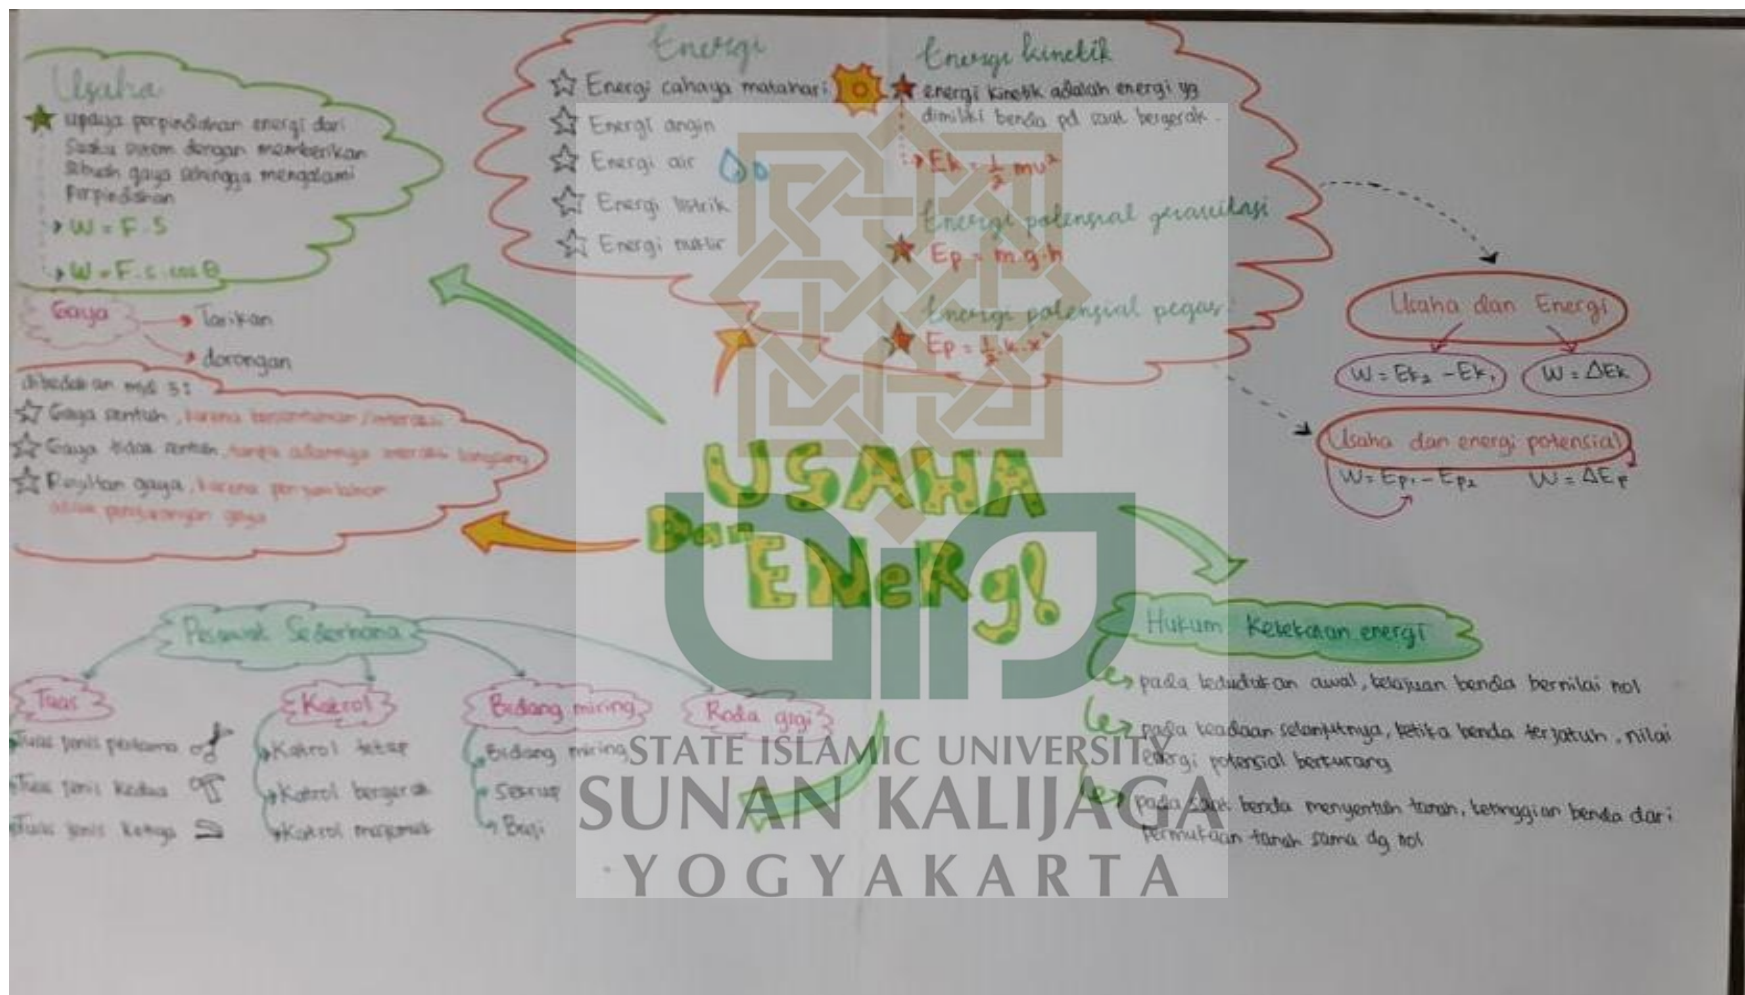 Usaha
upaya perpindahan energi dari
suatu sistem dengan memberikan
sebuah gaya sehingga mengalami
perpindahan
W = F.S
W = F.S.cos θ
Gaya
Tarikan
dorongan
dibedakan mjd 3:
Gaya sentuh, karena bersentuhan/interaksi
Gaya tidak sentuh, tanpa adannya interaksi langsung
Resultan gaya, karena penjumlahan
atau pengurangan gaya
Energi
Energi cahaya matahari
Energi angin
Energi air
Energi listrik
Energi nuklir
Energi kinetik
energi kinetik adalah energi yg
dimiliki benda pd saat bergerak.
Ek = 1/2 mv²
Energi potensial gravitasi
Ep = m.g.h
Energi potensial pegas:
Ep = 1/2.k.x²
Usaha dan Energi
W = Ek₂ - Ek₁
W = ΔEk
Usaha dan energi potensial
W = Ep₁ - Ep₂
W = ΔEp
USAHA
Dan
ENeRgI
Pesawat Sederhana
Tuas
Tuas jenis pertama
Tuas jenis kedua
Tuas jenis ketiga
Katrol
Katrol tetap
Katrol bergerak
Katrol majemuk
Bidang miring
Bidang miring
Sekrup
Baji
Roda gigi
Hukum Kekekalan energi
pada kedudukan awal, kelajuan benda bernilai nol
pada keadaan selanjutnya, ketika benda terjatuh, nilai
energi potensial berkurang
pada saat benda menyentuh tanah, ketinggian benda dari
permukaan tanah sama dg nol
STATE ISLAMIC UNIVERSITY
SUNAN KALIJAGA
YOGYAKARTA